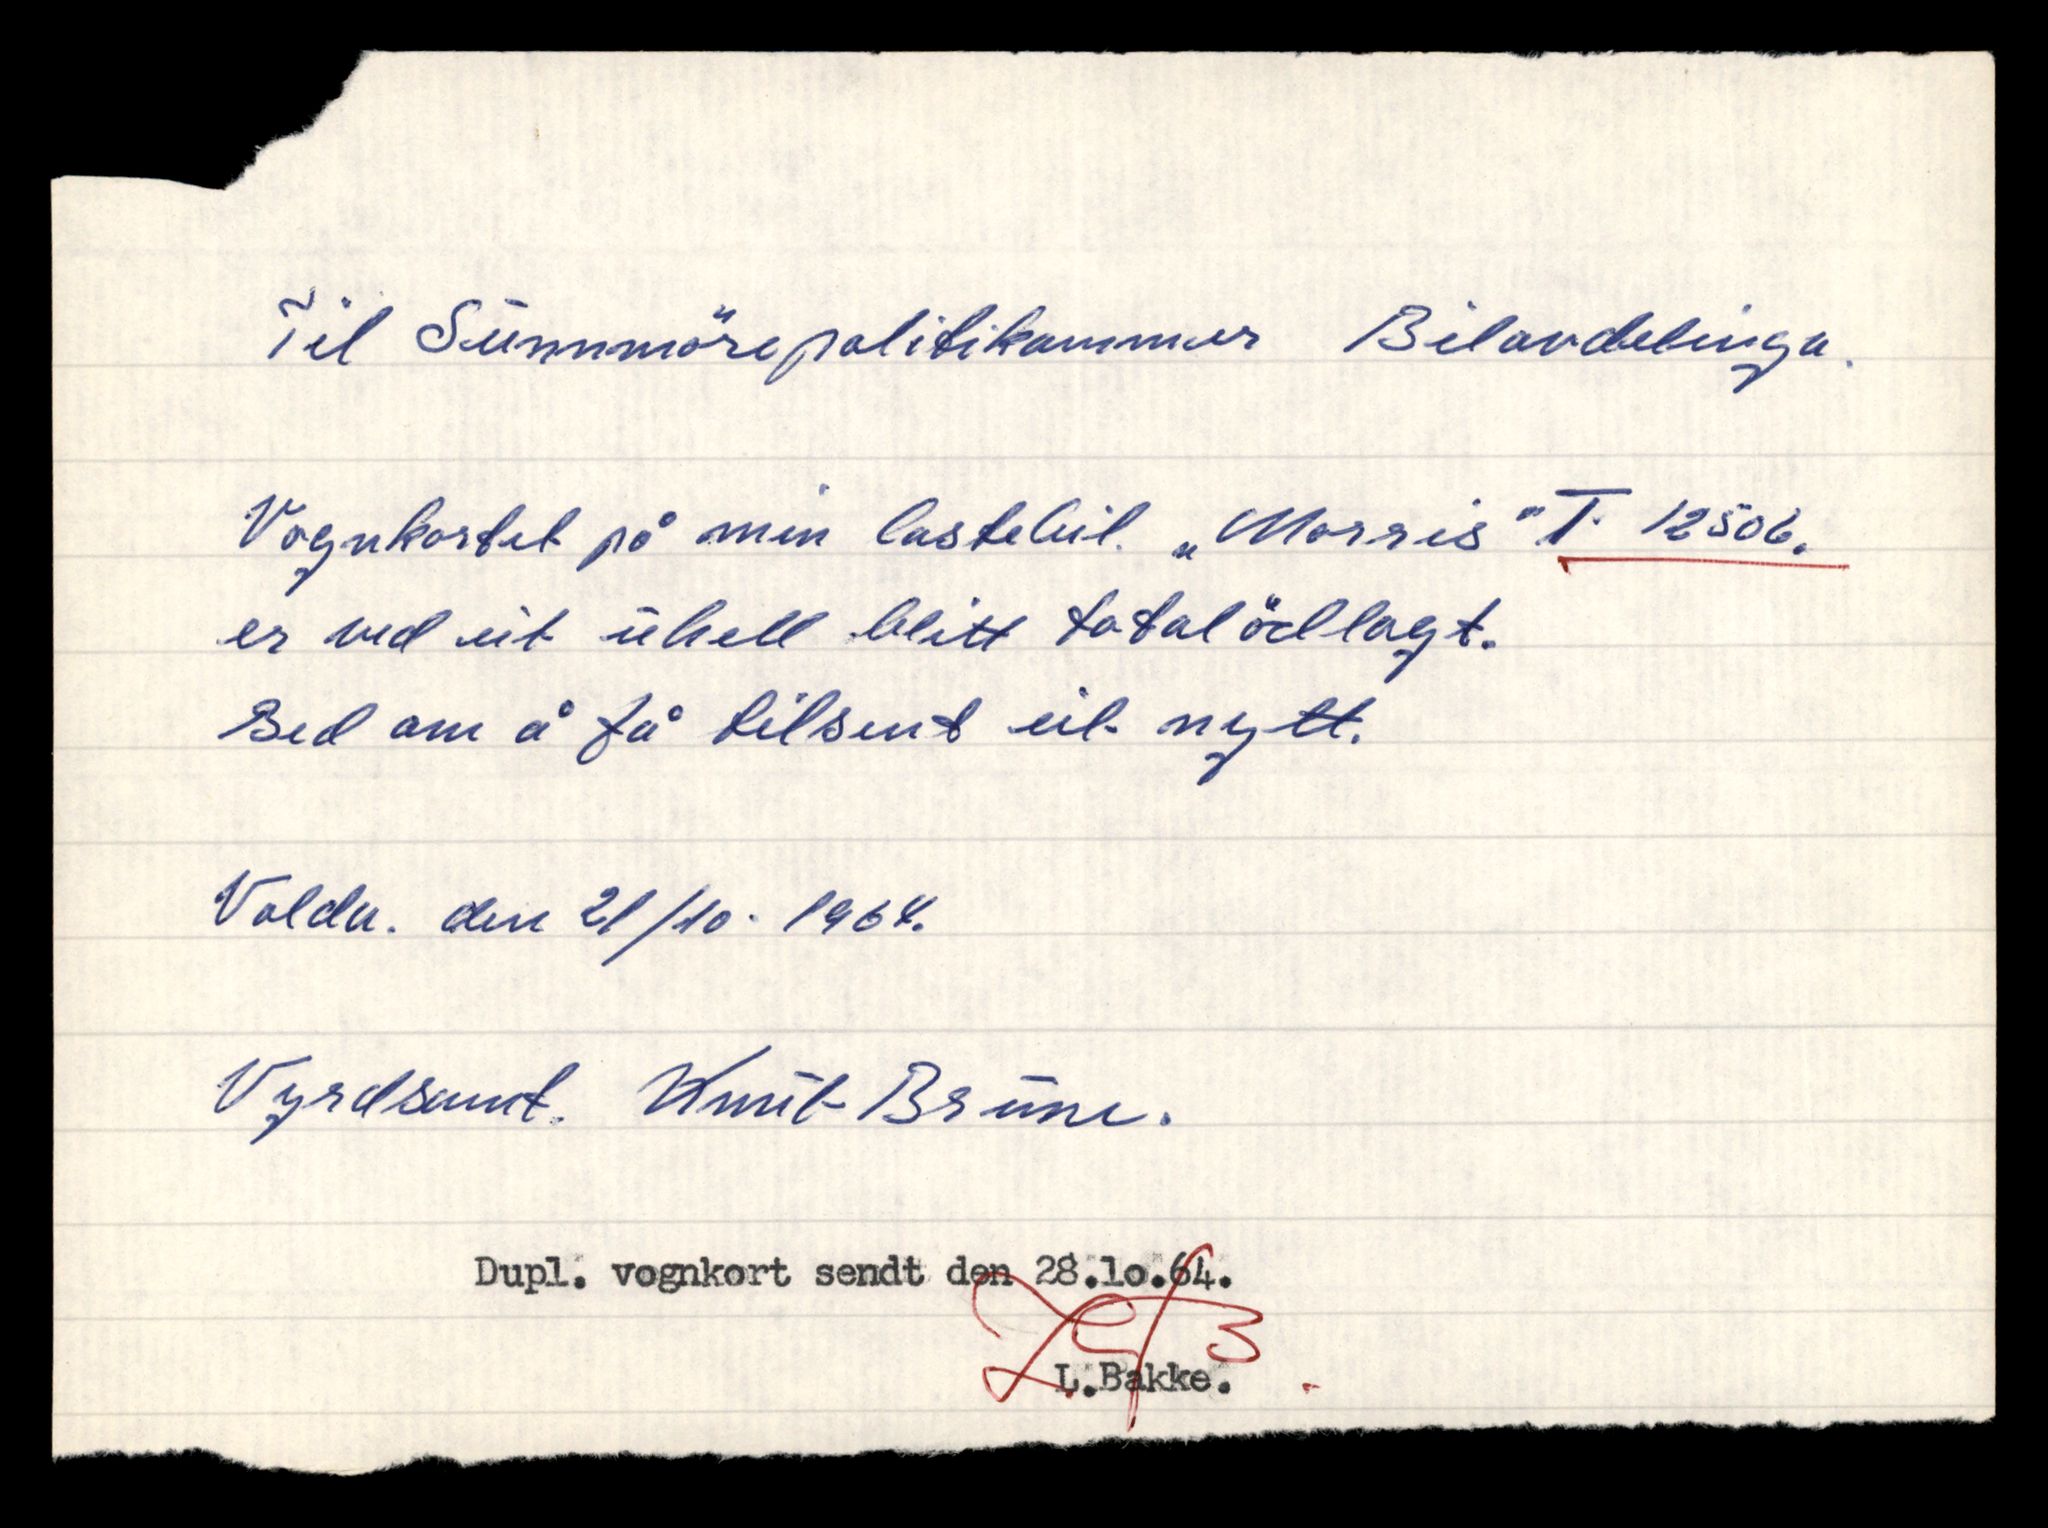 Til Sunnmöre politikammer Bilavdelinga.
Vognkortet på min lastebil. „Morris" T. 12506.
er ved eit uhell blitt totalödlagt.
Bed om å få tilsent eit nytt.
Volda. den 21/10. 1964.
Vyrdsamt. Knut Brune.
Dupl. vognkort sendt den 28.lo.64.
L.Bakke.